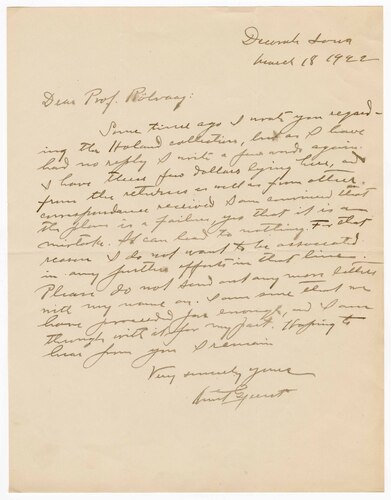 Decorah Iowa
March 18 1922
Dear Prof. Rölvaag:
Some time ago I wrote you regard-
ing the Holand collection, but as I have
had no reply I write a few words again.
I have these few dollars lying here, and
from the returns as well as from other
correspondence received I am convinced that
the plan is a failure, yes that it is a
mistake. It can lead to nothing. For that
reason I do not want to be associated
in any further efforts in that line.
Please do not send out any more letters
with my name on. I am sure that we
have proceeded far enough, and I am
through with it for my part. Hoping to
hear from you I remain
Very sincerely yours